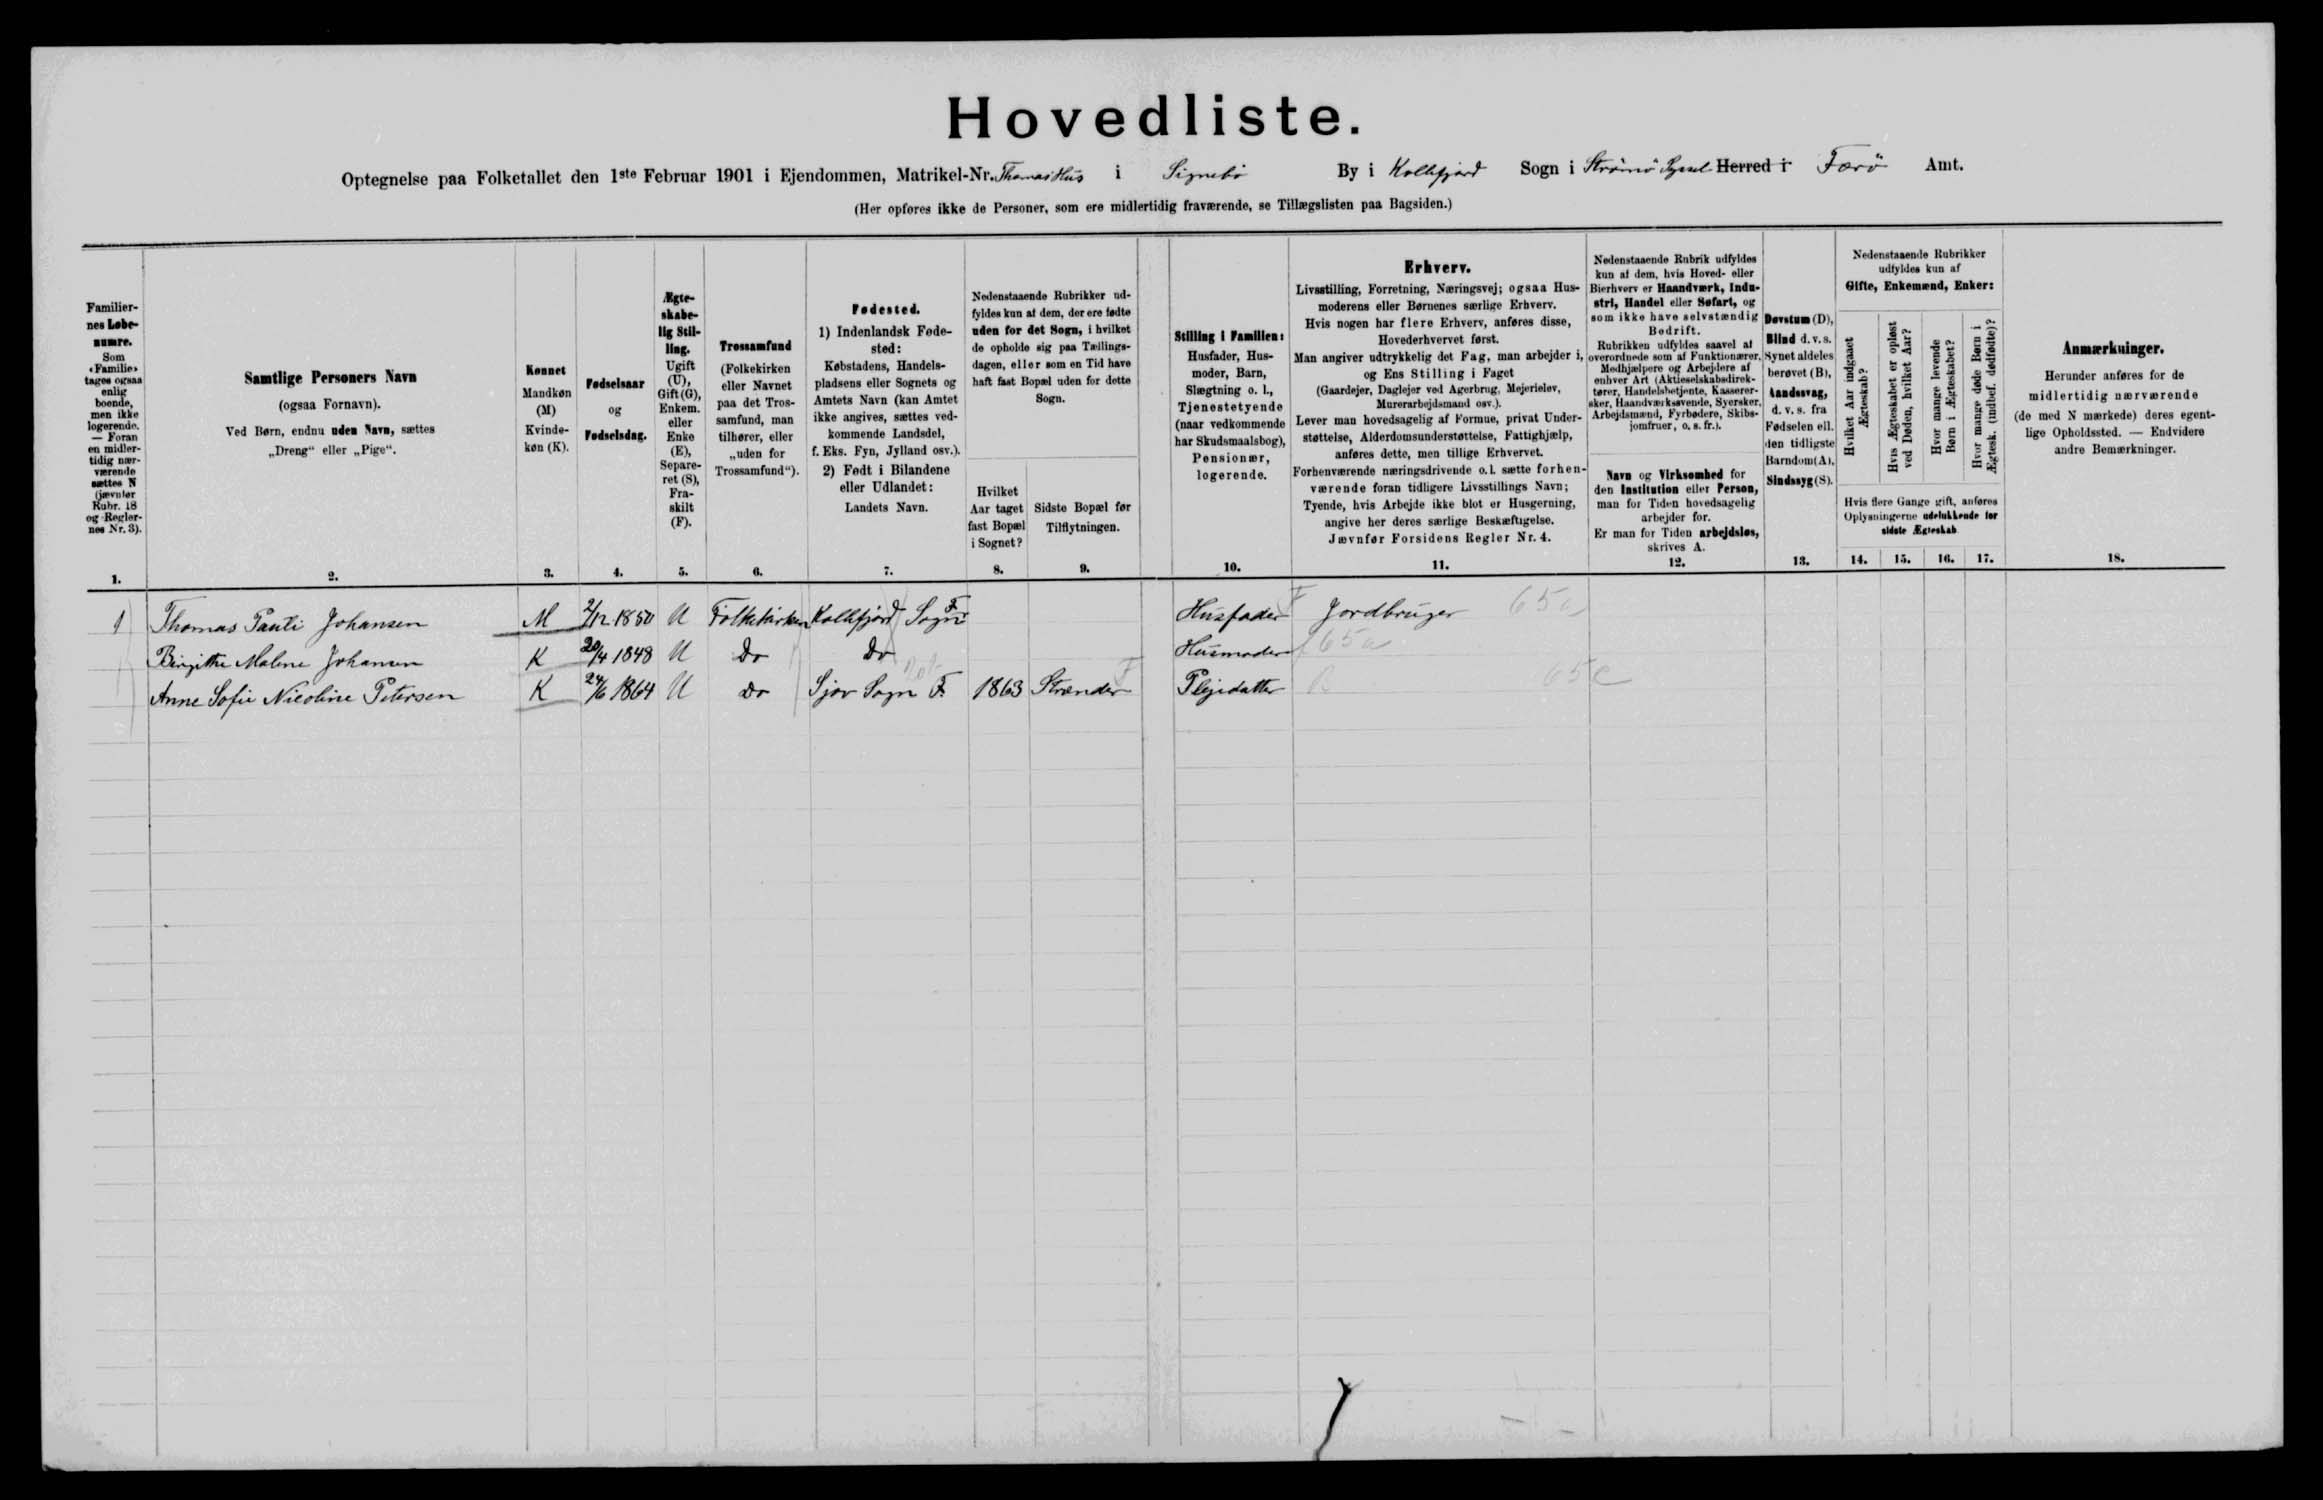 Hovedliste.
Optegnelse paa Folketallet den 1ste Februar 1901 i Ejendommen, Matrikel-Nr. Thomas Hus i Signebö By i Kollefjord Sogn i Strömö Syssel Herred i Færö Amt.
(Her opføres ikke de Personer, som ere midlertidig fraværende, se Tillægslisten paa Bagsiden.)
Familier-
nes Løbe-
numre.
Som
«Familie»
tages ogsaa
enlig
boende,
men ikke
logerende.
— Foran
en midler-
tidig nær-
værende
sættes N
(jævnfør
Rubr. 18
og Regler-
nes Nr. 3).
1.
Samtlige Personers Navn
(ogsaa Fornavn).
Ved Børn, endnu uden Navn, sættes
„Dreng“ eller „Pige“.
2.
Kønnet
Mandkøn
(M)
Kvinde-
køn (K).
3.
Fødselsaar
og
Fødselsdag.
4.
Ægte-
skabe-
lig Stil-
ling.
Ugift
(U),
Gift (G),
Enkem.
eller
Enke
(E),
Separe-
ret (S),
Fra-
skilt
(F).
5.
Trossamfund
(Folkekirken
eller Navnet
paa det Tros-
samfund, man
tilhører, eller
„uden for
Trossamfund“).
6.
Fødested.
1) Indenlandsk Føde-
sted:
Købstadens, Handels-
pladsens eller Sognets og
Amtets Navn (kan Amtet
ikke angives, sættes ved-
kommende Landsdel,
f. Eks. Fyn, Jylland osv.).
2) Født i Bilandene
eller Udlandet:
Landets Navn.
7.
Nedenstaaende Rubrikker ud-
fyldes kun af dem, der ere fødte
uden for det Sogn, i hvilket
de opholde sig paa Tællings-
dagen, eller som en Tid have
haft fast Bopæl uden for dette
Sogn.
Hvilket
Aar taget
fast Bopæl
i Sognet?
8.
Sidste Bopæl før
Tilflytningen.
9.
Stilling i Familien:
Husfader, Hus-
moder, Barn,
Slægtning o. l.,
Tjenestetyende
(naar vedkommende
har Skudsmaalsbog),
Pensionær,
logerende.
10.
Erhverv.
Livsstilling, Forretning, Næringsvej; ogsaa Hus-
moderens eller Børnenes særlige Erhverv.
Hvis nogen har flere Erhverv, anføres disse,
Hovederhvervet først.
Man angiver udtrykkelig det Fag, man arbejder i,
og Ens Stilling i Faget
(Gaardejer, Daglejer ved Agerbrug, Mejerielev,
Murerarbejdsmand osv.).
Lever man hovedsagelig af Formue, privat Under-
støttelse, Alderdomsunderstøttelse, Fattighjælp,
anføres dette, men tillige Erhvervet.
Forhenværende næringsdrivende o. l. sætte forhen-
værende foran tidligere Livsstillings Navn;
Tyende, hvis Arbejde ikke blot er Husgerning,
angive her deres særlige Beskæftigelse.
Jævnfør Forsidens Regler Nr. 4.
11.
Nedenstaaende Rubrik udfyldes
kun af dem, hvis Hoved- eller
Bierhverv er Haandværk, Indu-
stri, Handel eller Søfart, og
som ikke have selvstændig
Bedrift.
Rubrikken udfyldes saavel af
overordnede som af Funktionærer,
Medhjælpere og Arbejdere af
enhver Art (Aktieselskabsdirek-
tører, Handelsbetjente, Kasserer-
sker, Haandværkssvende, Syersker,
Arbejdsmænd, Fyrbødere, Skibs-
jomfruer, o. s. fr.).
Navn og Virksomhed for
den Institution eller Person,
man for Tiden hovedsagelig
arbejder for.
Er man for Tiden arbejdsløs,
skrives A.
12.
Døvstum (D),
Blind d. v. s.
Synet aldeles
berøvet (B),
Aandssvag,
d. v. s. fra
Fødselen ell.
den tidligste
Barndom (A),
Sindssyg (S).
13.
Nedenstaaende Rubrikker
udfyldes kun af
Gifte, Enkemænd, Enker:
Hvilket Aar indgaaet
Ægteskab?
Hvis Ægteskabet er opløst
ved Døden, hvilket Aar?
Hvor mange levende
Børn i Ægteskabet?
Hvor mange døde Børn i
Ægtesk. (indbef. dødfødte)?
Hvis flere Gange gift, anføres
Oplysningerne udelukkende for
sidste Ægteskab
14. 15. 16. 17.
Anmærkninger.
Herunder anføres for de
midlertidig nærværende
(de med N mærkede) deres egent-
lige Opholdssted. — Endvidere
andre Bemærkninger.
18.
1 Thomas Pauli Johansen M 2/12 1850 U Folkekirken Kollefjord Sogn F. Husfader F Jordbruger 65a
Birgithe Malene Johansen K 20/4 1848 U Do Do Husmoder 65a
Anne Sofie Nicoline Petersen K 24/6 1864 U Do Sjov Sogn F. 1863 Strænder F Plejedatter 65c